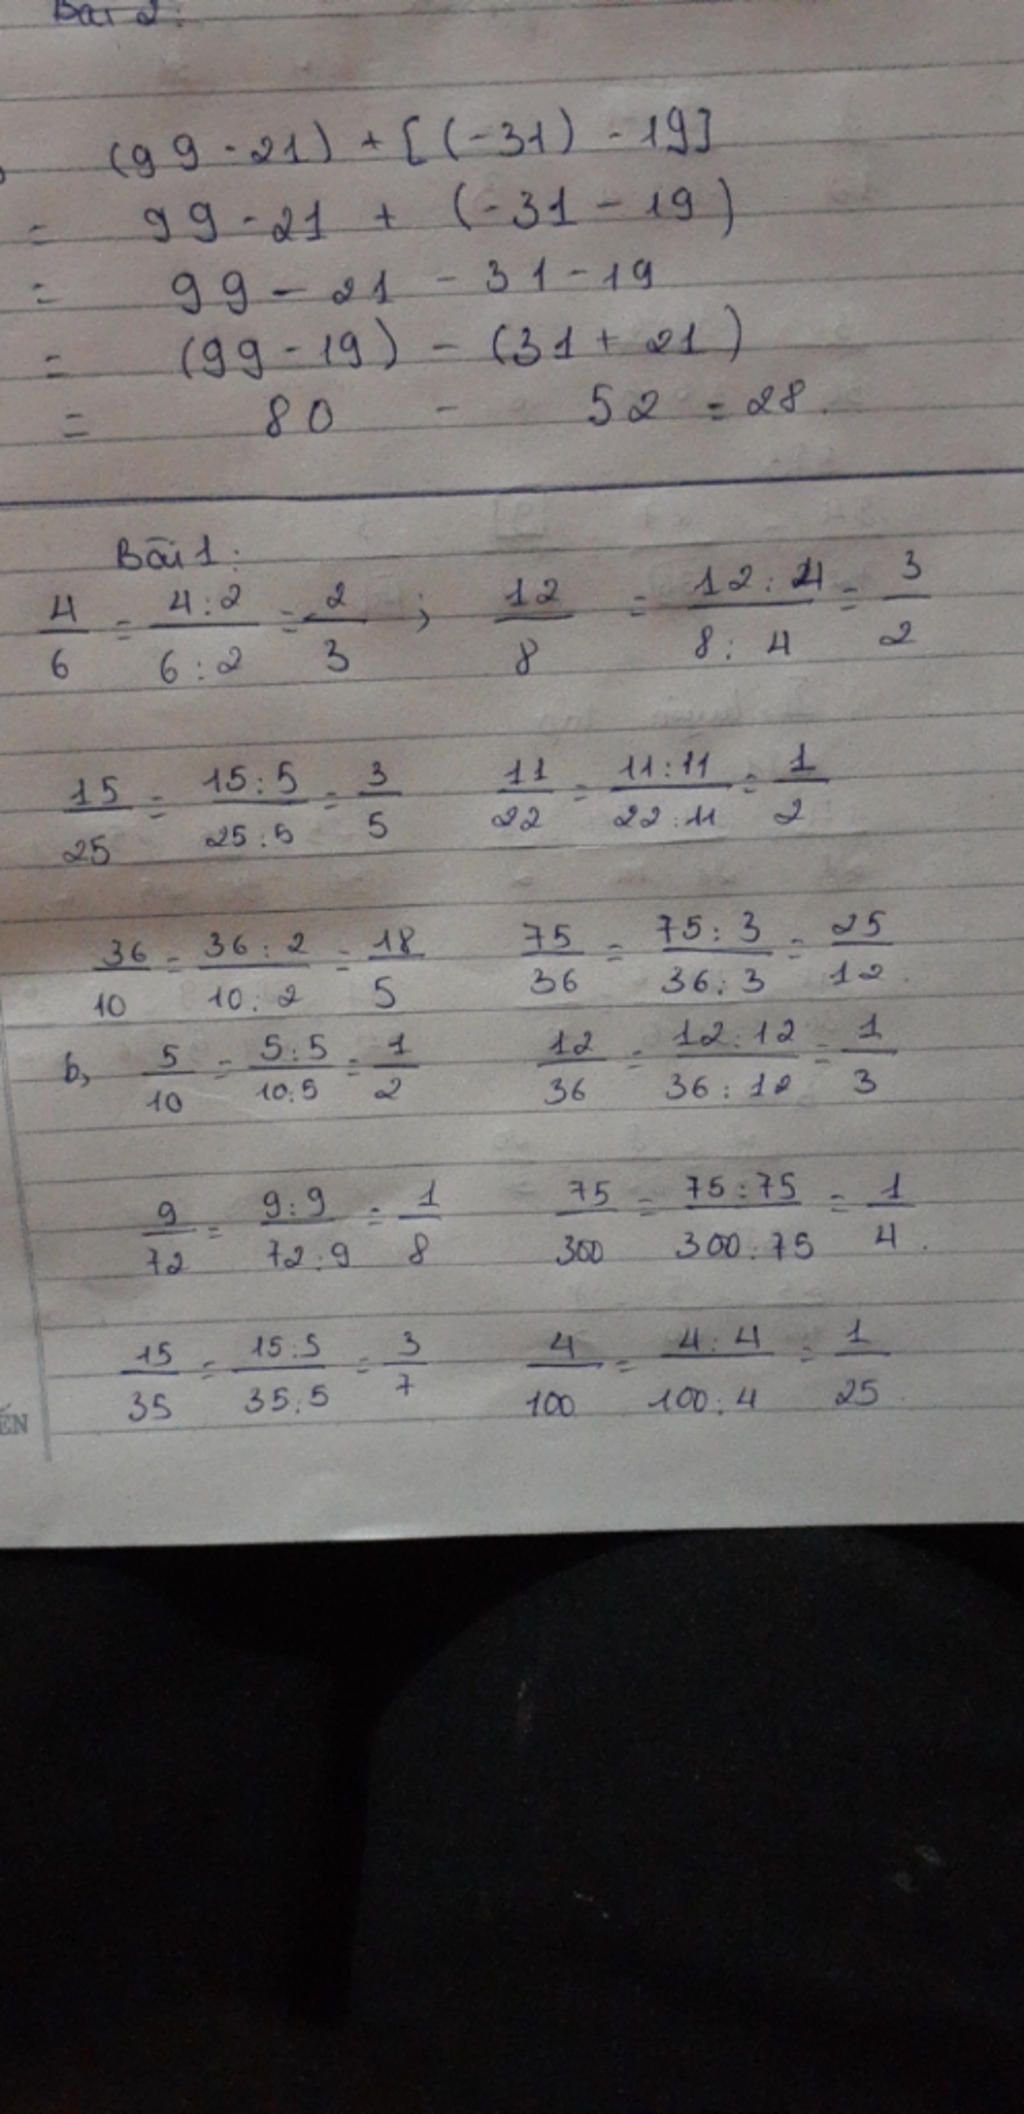 Bài 2:
(99 - 21) + [(-31) - 19]
= 99 - 21 + (-31 - 19)
= 99 - 21 - 31 - 19
= (99 - 19) - (31 + 21)
= 80 - 52 = 28.
Bài 1:
4/6 = 4:2/6:2 = 2/3 ; 12/8 = 12:4/8:4 = 3/2
15/25 = 15:5/25:5 = 3/5 11/22 = 11:11/22:11 = 1/2
36/10 = 36:2/10:2 = 18/5 75/36 = 75:3/36:3 = 25/12.
b, 5/10 = 5:5/10:5 = 1/2 12/36 = 12:12/36:12 = 1/3
9/72 = 9:9/72:9 = 1/8 75/300 = 75:75/300:75 = 1/4.
15/35 = 15:5/35:5 = 3/7 4/100 = 4:4/100:4 = 1/25.